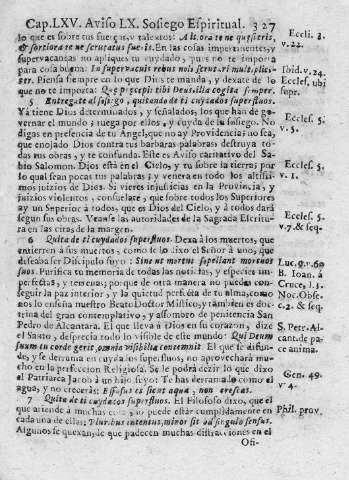 Cap. LXV. Aviso LX. Sosiego Espiritual. 327
lo que es sobre tus fuerças, y talentos: Altiora te ne quæsieris,
& fortiora te ne scrutatus fueris. En las cosas impertinentes, y
supervacanas no apliques tu cuydado, pues no te importa
para cosa buena: In supervacuis rebus noli scrutari multiplici-
ter. Piensa siempre en lo que Dios te manda, y dexate de lo
que no te importa: Quæ præcepit tibi Deus illa cogita semper.
5 Entregate al sosiego, quitando de ti cuydados superfluos.
Yá tiene Dios determinados, y señalados, los que han de go-
vernar el mundo; ruega por ellos, y cuyda de tu sosiego. No
digas en presencia de tu Angel, que no ay Providencia; no sea,
que enojado Dios contra tus barbaras palabras destruya to-
das tus obras, y te confunda. Este es Aviso caritativo del Sa-
bio Salomon. Dios està en el Cielo, y tu sobre la tierra; por
lo qual sean pocas tus palabras; y venera en todo los altissi-
mos juizios de Dios. Si vieres injusticias en la Provincia, y
juizios violentos, consuelate, que sobre todos los Superiores
ay un Superior à todos, que es Dios del Cielo, y à todos dará
segun sus obras. Veanse las autoridades de la Sagrada Escritu-
ra en las citas de la margen.
6 Quita de ti cuydados superfluos. Dexa à los muertos, que
entierren à sus muertos, como se lo dixo el Señor à uno, que
deseaba ser Discipulo suyo: Sine ut mortui sepeliant mortuos
suos. Purifica tu memoria de todas las noticias, y especies im-
perfectas, y terrenas; porque de otra manera no puedes con-
seguir la paz interior, y la quietud perfecta de tu alma, como
nos lo enseña nuestro Beato Doctor Mistico; y tambien es doc-
trina del gran contemplativo, y assombro de penitencia San
Pedro de Alcantara. El que lleva á Dios en su corazon, dize
el Santo, desprecia todo lo visible de este mundo: Qui Deum
suum in corde gerit, omnia visibilia contemnit. El que te difun-
de, y se derrama en cuydados superfluos, no aprovecharà mu-
cho en la perfeccion Religiosa. Se le podrà dezir lo que dixo
el Patriarca Jacob à un hijo suyo: Te has derramado como el
agua, y no crecerás: Effusus es sicut aqua, non crescas.
7 Quita de ti cuydados superfluos. El Filosofo dixo, que el
que atiende à muchas cosas, no puede estàr cumplidamente en
cada una de ellas: Pluribus intentus, minor fit ad singula sensus.
Algunos se quexan, de que padecen muchas distracciones en el
Ofi-
Eccli. 3.
v. 22.
Ibid. v. 24.
Eccles. ubi
supr.
Eccles. 5.
v. 5.
Eccles. 5.
v. 1.
Eccles. 5.
v. 7. & seq.
Luc. 9. v. 60
B. Joan. à
Cruce, l. 3.
Noc. Obsc.
c. 2. & seq.
S. Petr. Al-
cant. de pa-
ce animæ.
Gen. 49.
v. 4.
Phil. prov.